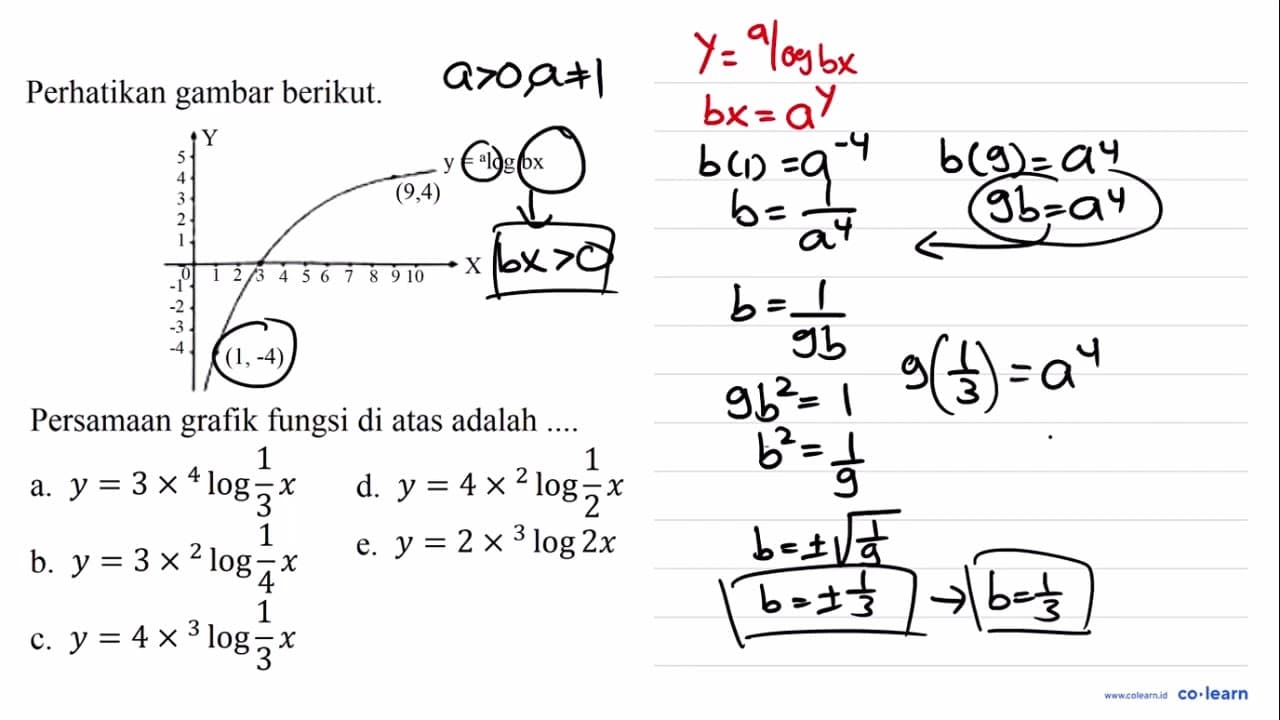 Perhatikan gambar berikut.
a>0, a≠1
Y
5
4
3
2
1
0 1 2 3 4 5 6 7 8 9 10 X
-1
-2
-3
-4
y = ᵃlog bx
(9,4)
(1, -4)
bx > 0
Persamaan grafik fungsi di atas adalah ....
a. y = 3 × ⁴log 1/3 x
b. y = 3 × ²log 1/4 x
c. y = 4 × ³log 1/3 x
d. y = 4 × ²log 1/2 x
e. y = 2 × ³log 2x
y = ᵃlog bx
bx = a^y
b(1) = a^-4
b = 1/a^4
b = 1/9b
9b² = 1
b² = 1/9
b = ±√(1/9)
b = ± 1/3 → b = 1/3
b(9) = a^4
9b = a^4
9(1/3) = a^4
www.colearn.id co·learn